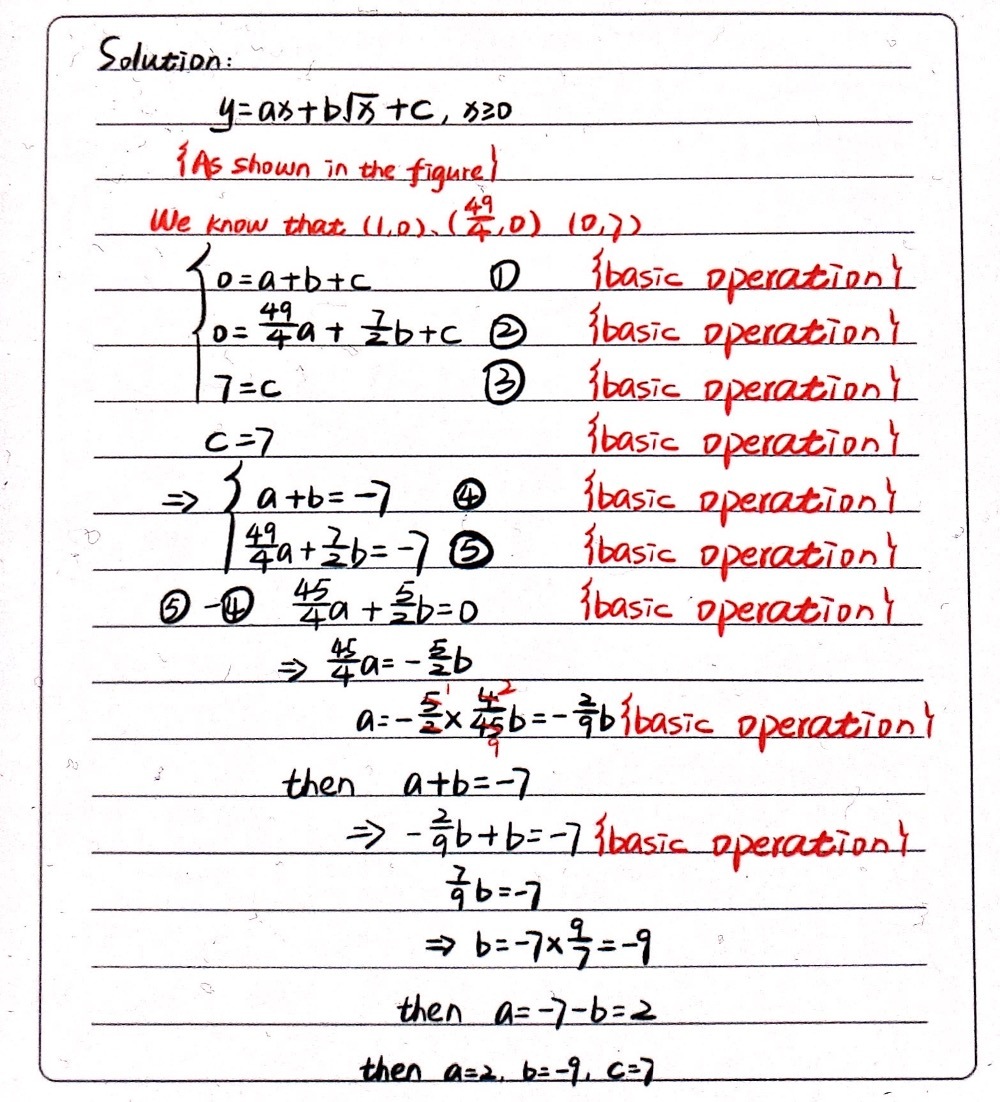 Solution:
y=ax+b√x+c, x≥0
{As shown in the figure}
We know that (1,0)、(49/4,0) (0,7)
{ 0=a+b+c ① {basic operation}
0=49/4a+7/2b+c ② {basic operation}
7=c ③ {basic operation}
c=7 {basic operation}
⇒ { a+b=-7 ④ {basic operation}
49/4a+7/2b=-7 ⑤ {basic operation}
⑤-④ 45/4a+5/2b=0 {basic operation}
⇒ 45/4a=-5/2b
a=-5/2×4/45b=-2/9b {basic operation}
then a+b=-7
⇒ -2/9b+b=-7 {basic operation}
7/9b=-7
⇒ b=-7×9/7=-9
then a=-7-b=2
then a=2, b=-9, c=7